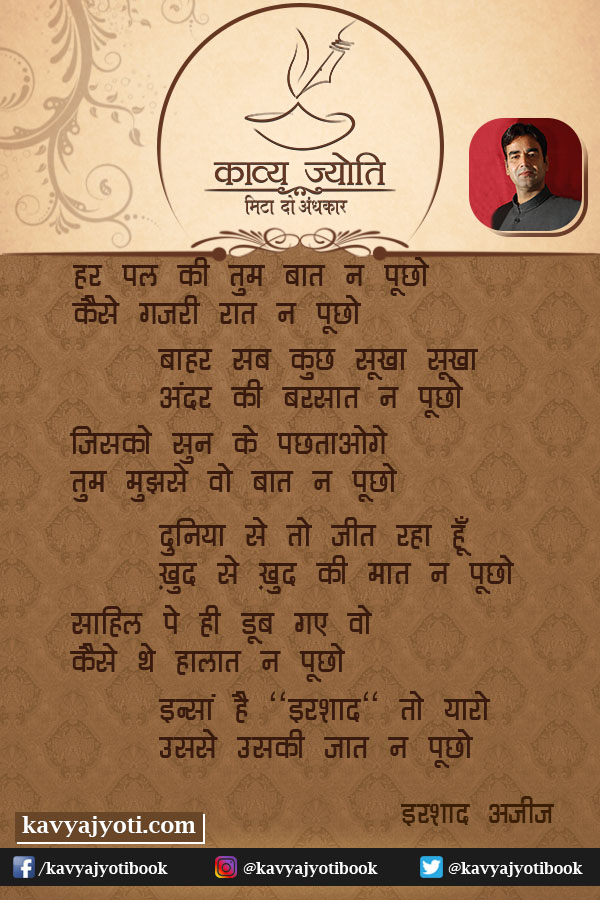 काव्य ज्योति
मिटा दो अंधकार
हर पल की तुम बात न पूछो
कैसे गजरी रात न पूछो
बाहर सब कुछ सूखा सूखा
अंदर की बरसात न पूछो
जिसको सुन के पछताओगे
तुम मुझसे वो बात न पूछो
दुनिया से तो जीत रहा हूँ
ख़ुद से ख़ुद की मात न पूछो
साहिल पे ही डूब गए वो
कैसे थे हालात न पूछो
इन्सां है “इरशाद“ तो यारो
उससे उसकी जात न पूछो
इरशाद अजीज
kavyajyoti.com
/kavyajyotibook
@kavyajyotibook
@kavyajyotibook